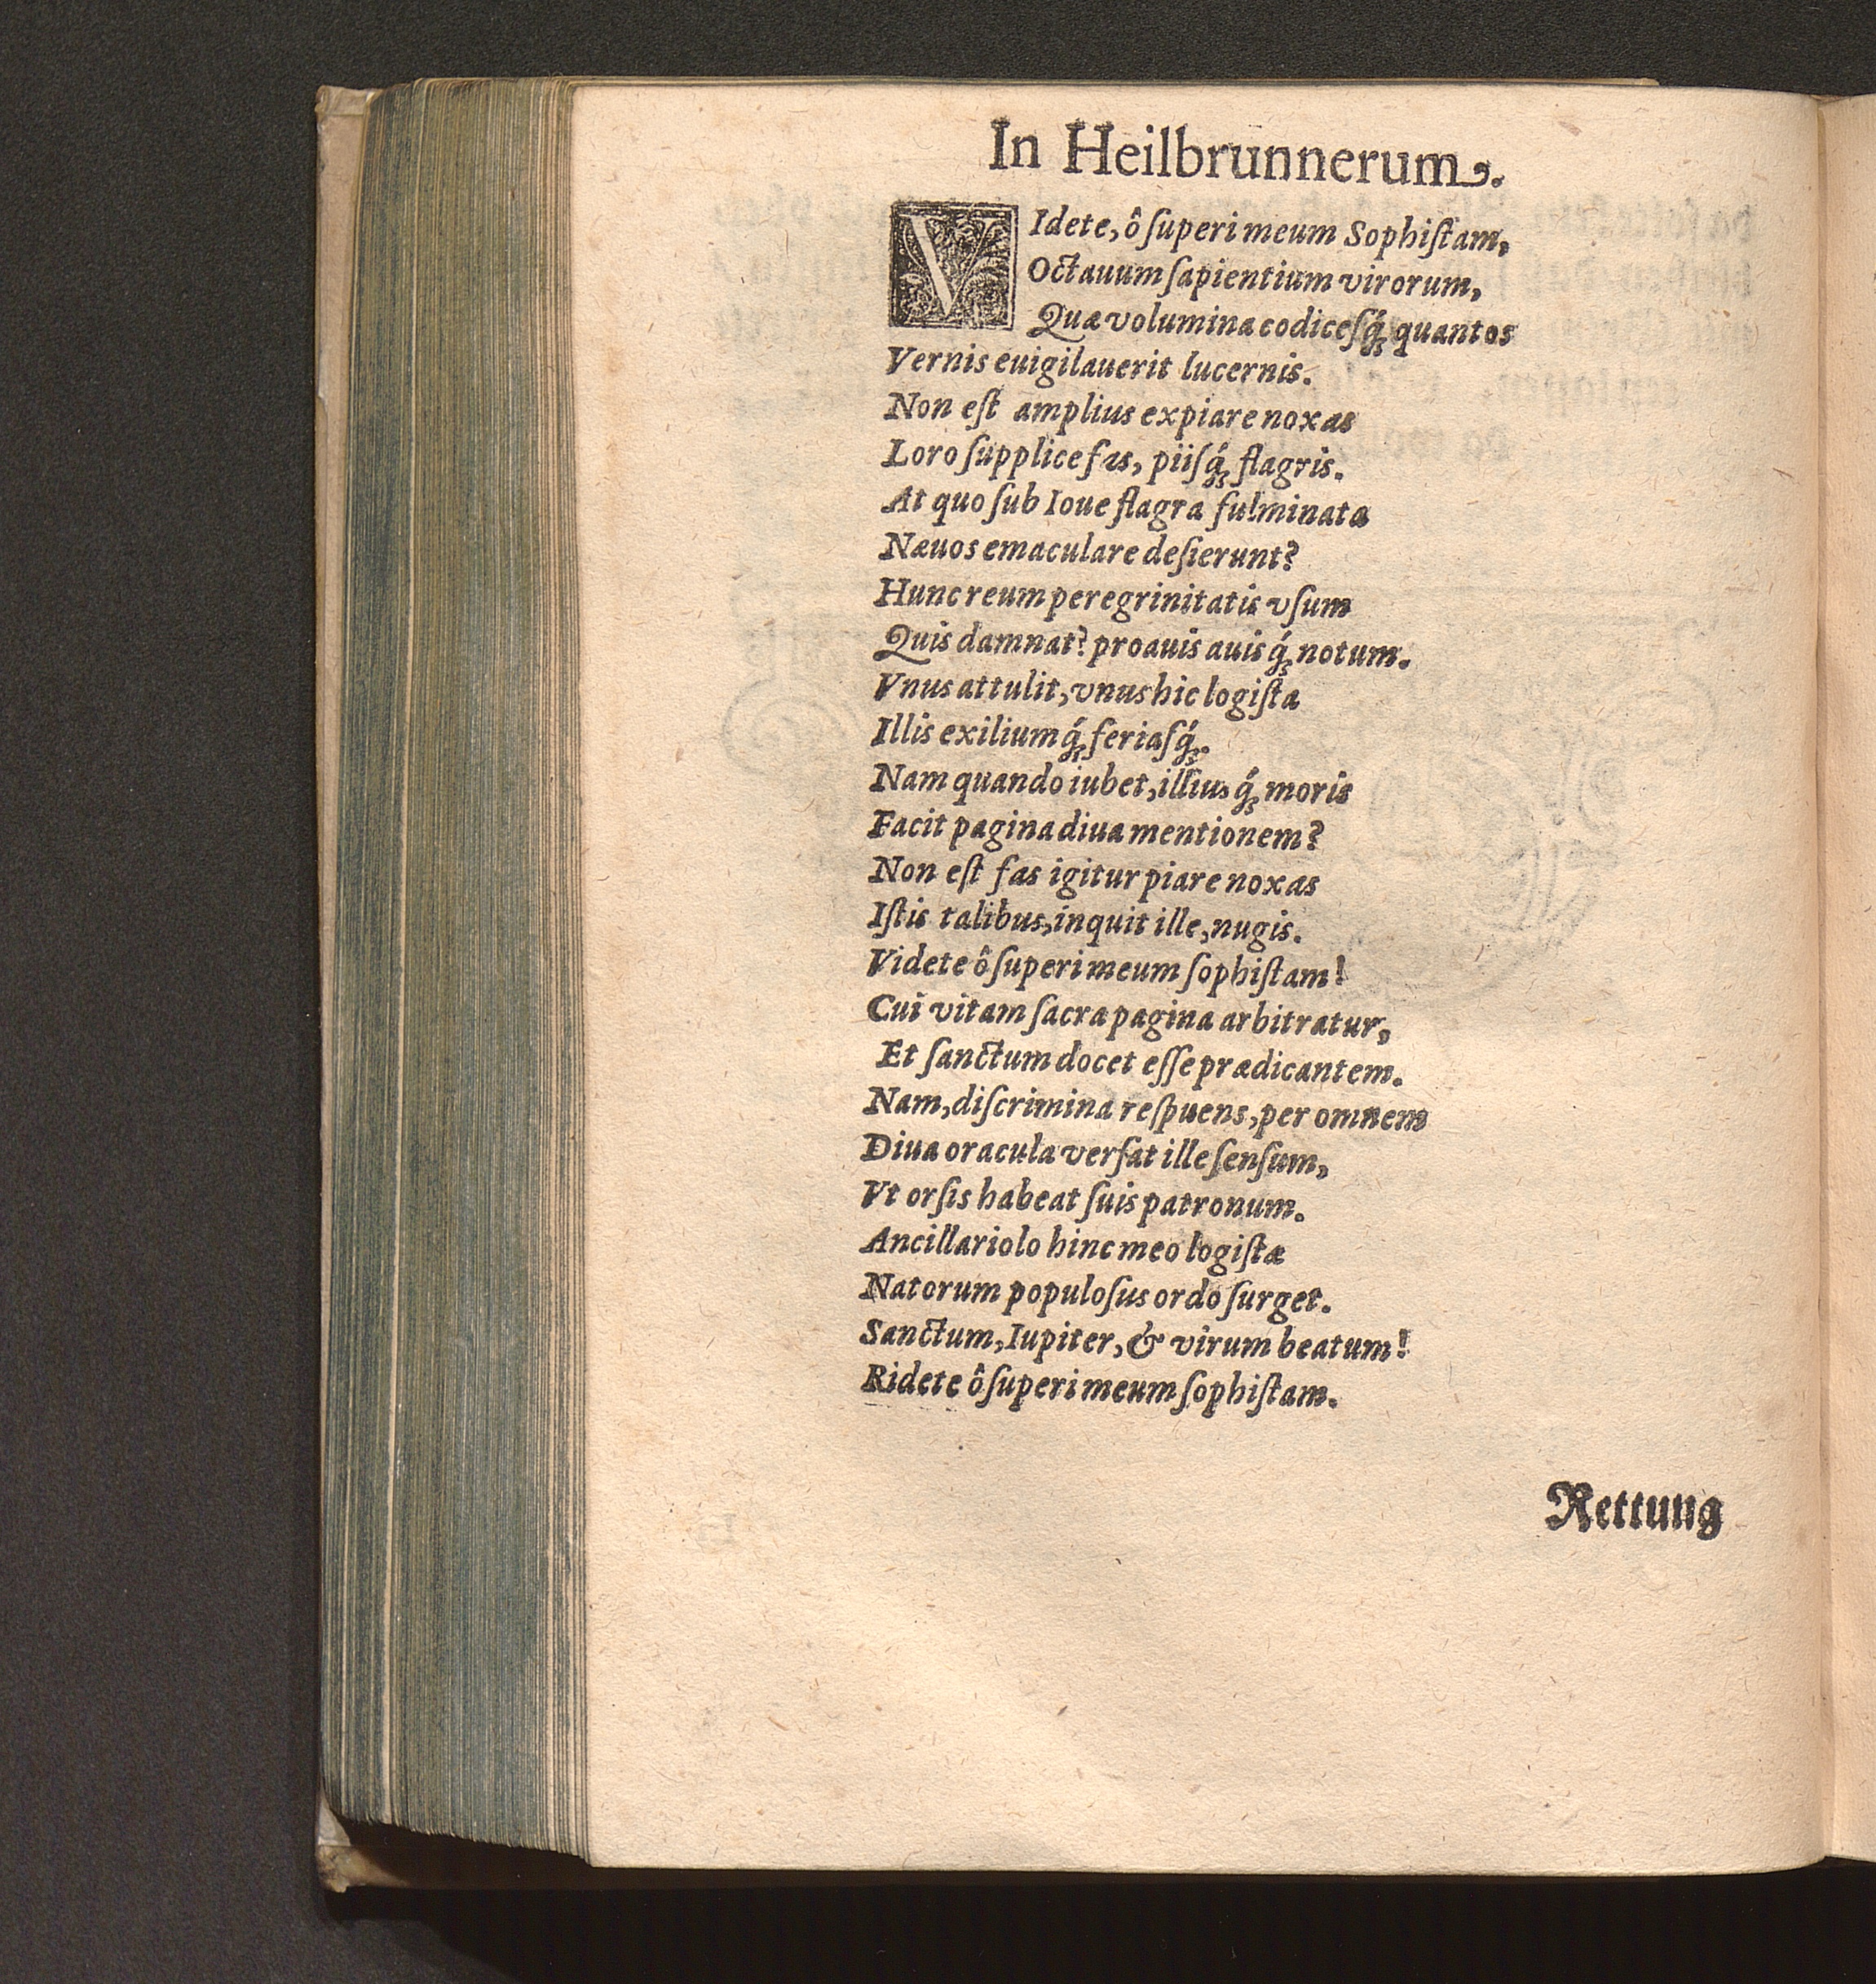 In Heilbrunnerum.
VIdete, ô ſuperi meum Sophiſtam,
Octauum ſapientium virorum,
Quæ volumina codiceſq́; quantos
Vernis euigilauerit lucernis.
Non eſt amplius expiare noxas
Loro ſupplice fas, piiſq́; flagris.
At quo ſub Ioue flagra fulminata
Næuos emaculare deſierunt?
Hunc reum peregrinitatis vſum
Quis damnat? proauis auisq́; notum.
Vnus attulit, vnus hic logiſta
Illis exiliumq́; feriaſq́;.
Nam quando iubet, illiusq́; moris
Facit pagina diua mentionem?
Non eſt fas igitur piare noxas
Iſtis talibus, inquit ille, nugis.
Videte ô ſuperi meum ſophiſtam!
Cui vitam ſacra pagina arbitratur,
Et ſanctum docet eſſe prædicantem.
Nam, diſcrimina reſpuens, per omnem
Diua oracula verſat ille ſenſum,
Vt orſis habeat ſuis patronum.
Ancillariolo hinc meo logiſtæ
Natorum populoſus ordo ſurget.
Sanctum, Iupiter, & virum beatum!
Ridete ô ſuperi meum ſophiſtam.
Rettung